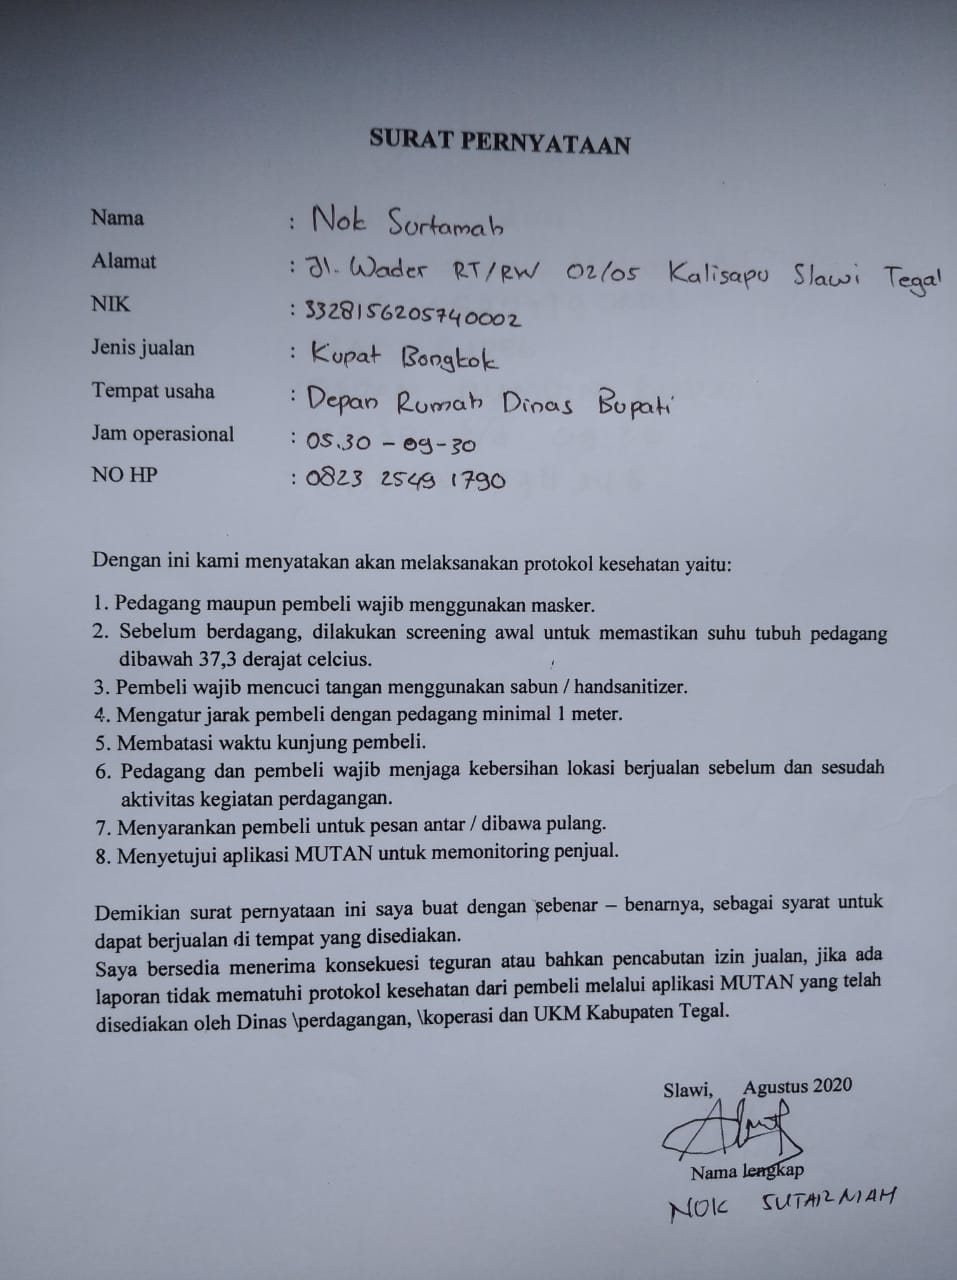 SURAT PERNYATAAN
Nama : Nok Surtamah
Alamat : Jl. Wader RT/RW 02/05 Kalisapu Slawi Tegal
NIK : 3328156205740002
Jenis jualan : Kupat Bongkok
Tempat usaha : Depan Rumah Dinas Bupati
Jam operasional : 05.30 - 09-30
NO HP : 0823 2549 1790
Dengan ini kami menyatakan akan melaksanakan protokol kesehatan yaitu:
1. Pedagang maupun pembeli wajib menggunakan masker.
2. Sebelum berdagang, dilakukan screening awal untuk memastikan suhu tubuh pedagang
dibawah 37,3 derajat celcius.
3. Pembeli wajib mencuci tangan menggunakan sabun / handsanitizer.
4. Mengatur jarak pembeli dengan pedagang minimal 1 meter.
5. Membatasi waktu kunjung pembeli.
6. Pedagang dan pembeli wajib menjaga kebersihan lokasi berjualan sebelum dan sesudah
aktivitas kegiatan perdagangan.
7. Menyarankan pembeli untuk pesan antar / dibawa pulang.
8. Menyetujui aplikasi MUTAN untuk memonitoring penjual.
Demikian surat pernyataan ini saya buat dengan sebenar – benarnya, sebagai syarat untuk
dapat berjualan di tempat yang disediakan.
Saya bersedia menerima konsekuesi teguran atau bahkan pencabutan izin jualan, jika ada
laporan tidak mematuhi protokol kesehatan dari pembeli melalui aplikasi MUTAN yang telah
disediakan oleh Dinas \perdagangan, \koperasi dan UKM Kabupaten Tegal.
Slawi, Agustus 2020
Nama lengkap
NOK SUTARNIAH